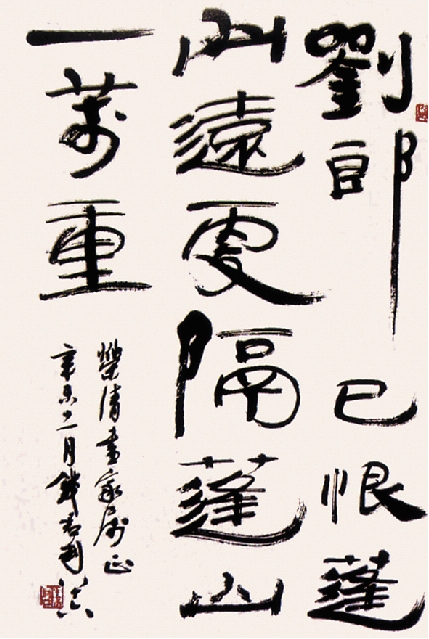 劉郎已恨蓬
山遠更隔蓬山
一萬重
樂清書家屬正
辛未十二月